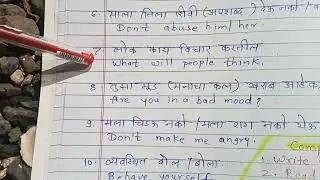 ६. त्याला तिला शिवी (अपशब्द) देऊ नको
Don't abuse him/her.
७. लोक काय विचार करतील
What will people think.
८. तुझा मूड (मनाचा कल) खराब आहे का
Are you in a bad mood?
९. मला चिडऊ नको / मला राग नको येऊ
Don't make me angry.
१०. व्यवस्थित बोल / बोला.
Behave yourself
1. Write
2. Read